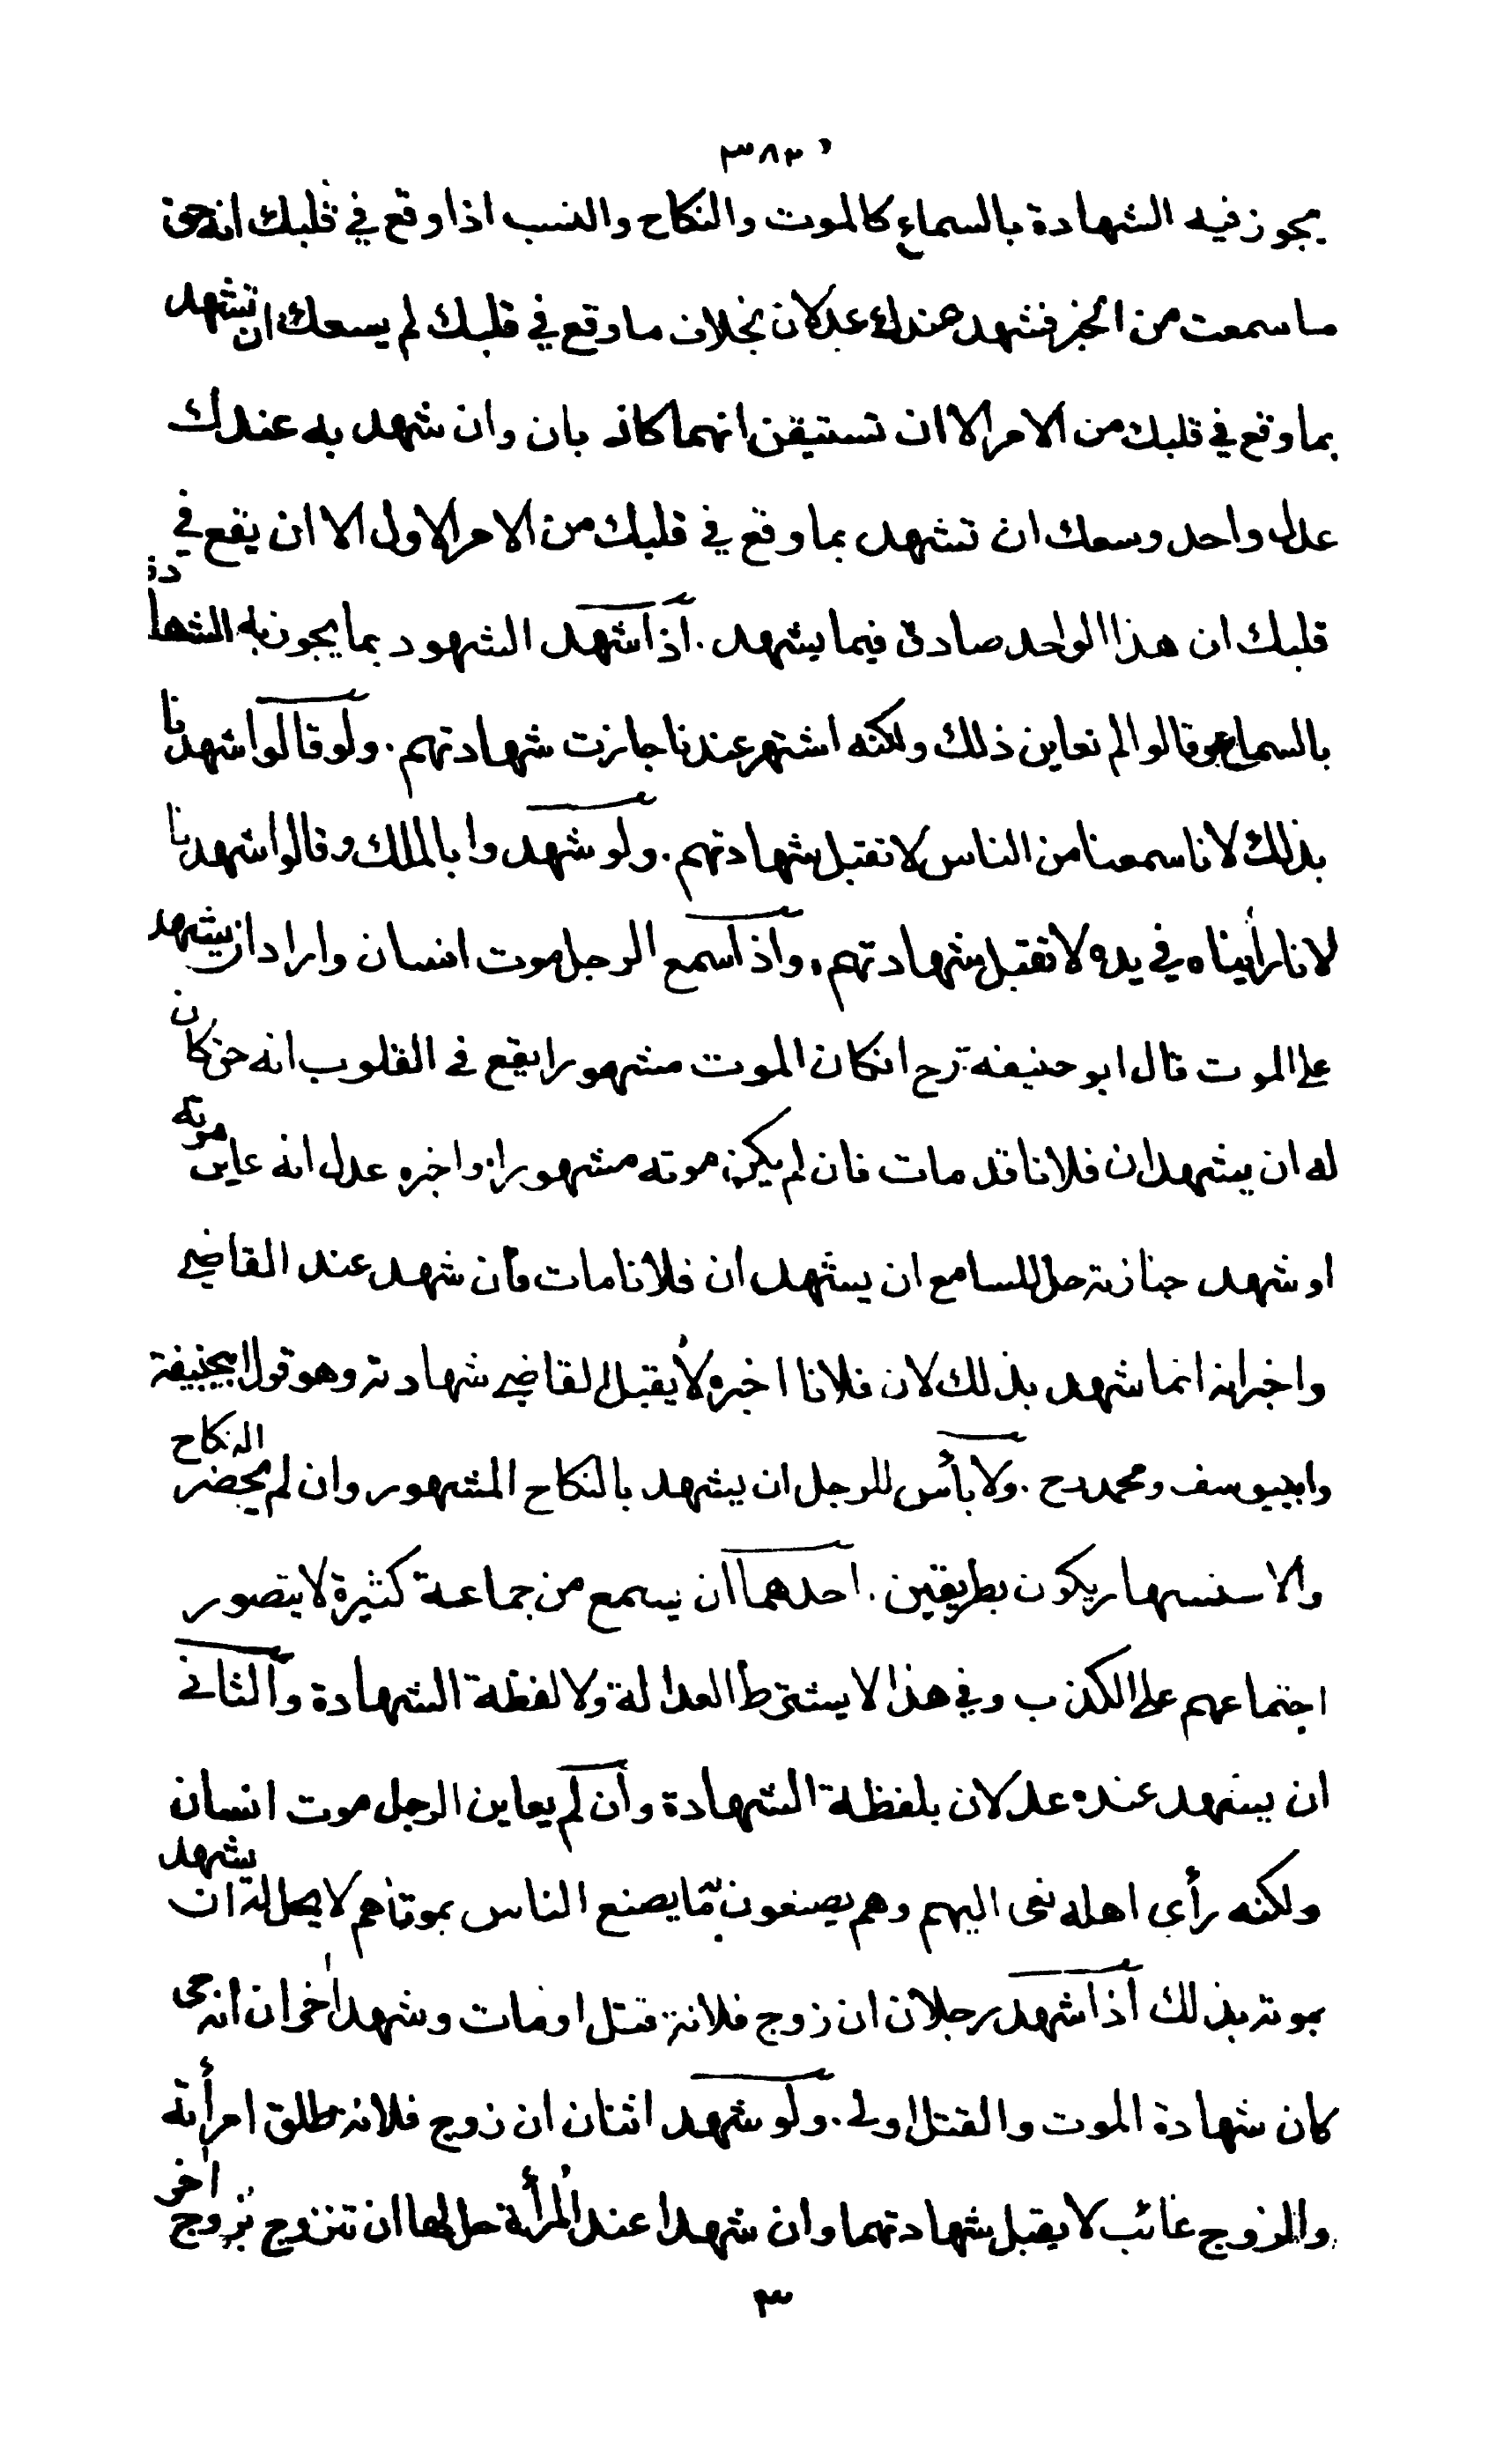 ٣٨٣
يجوز فيه الشهادة بالسماع كالموت والنكاح والنسب اذا وقع في قلبك انه حق
ما سمعت من الخبر فشهد عندك عدلان بخلاف ما وقع في قلبك لم يسعك ان تشهد
بما وقع في قلبك من الامر الا ان تستيقن انهما كاذبان وان شهد به عندك
عدل واحد وسعك ان تشهد بما وقع في قلبك من الامر الاول الا ان يقع في
قلبك ان هذا الواحد صادق فيما يشهد . اذا شهد الشهود بما يجوز به الشهادة
بالسماع وقالوا لم نعاين ذلك ولكنه اشتهر عندنا جازت شهادتهم . ولو قالوا شهدنا
بذلك لانا سمعنا من الناس لا تقبل شهادتهم . ولو شهدوا بالملك وقالوا شهدنا
لانا رأيناه في يده لا تقبل شهادتهم . واذا سمع الرجل موت انسان واراد ان يشهد
على الموت قال ابو حنيفة رح انكان الموت مشهورا يقع في القلوب انه حق كان
له ان يشهد ان فلانا قد مات فان لم يكن موته مشهورا واخبره عدل انه عاين موته
او شهد جنازته حل للسامع ان يشهد ان فلانا مات فان شهد عند القاضي
واخبر انه انما شهد بذلك لان فلانا اخبره لا يقبل القاضي شهادته وهو قول ابيحنيفة
وابييوسف ومحمد رح . ولا بأس للرجل ان يشهد بالنكاح المشهور وان لم يحضر النكاح
والاستشهار يكون بطريقين . احدهما ان يسمع من جماعة كثيرة لا يتصور
اجتماعهم على الكذب وفي هذا لا يشترط العدالة ولا لفظة الشهادة والثاني
ان يشهد عنده عدلان بلفظة الشهادة وان لم يعاين الرجل موت انسان
ولكنه رأى اهله نعى اليهم وهم يصنعون ما يصنع الناس بموتاهم لا يحل له ان يشهد
بموته بذلك اذا شهد رجلان ان زوج فلانة قتل او مات وشهد اخران انه حى
كان شهادة الموت والقتل اولى . ولو شهد اثنان ان زوج فلانة طلق امرأته
والزوج غائب لا يقبل شهادتهما وان شهدا عند المرأة حل لها ان تتزوج بزوج اخر
٣